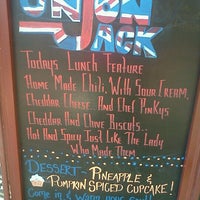 UNION
JACK
Todays Lunch Feature
Home Made Chili With Sour Cream,
Cheddar Cheese And Chef Pinkys
Cheddar And Chive Biscuits...
Hot And Spicy Just Like The Lady
Who Made Them
DESSERT - PINEAPPLE &
PUMPKIN SPICED CUPCAKE!
Come in & Warm